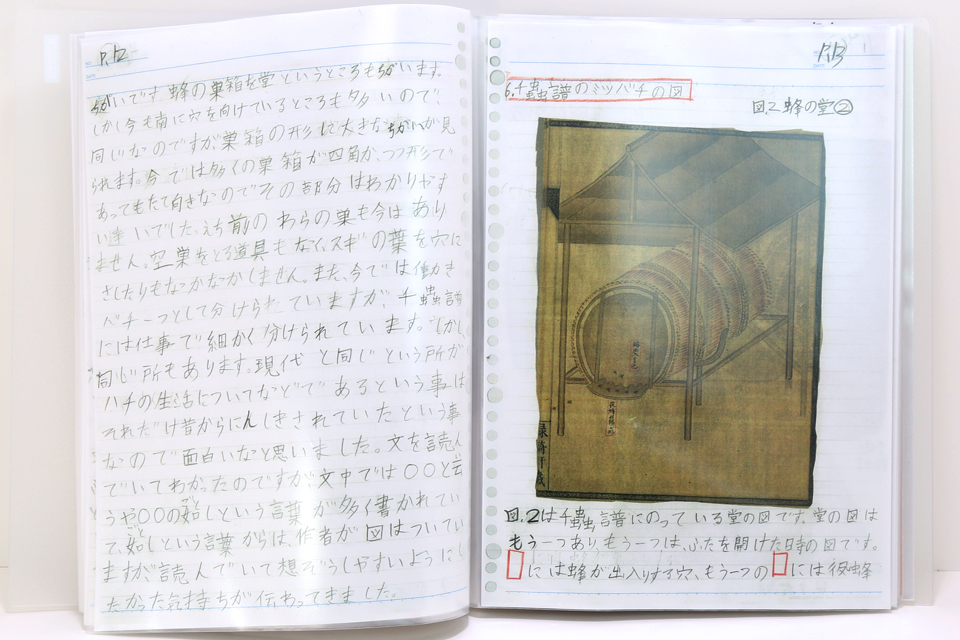 P.12
違いです。蜂の巣箱を堂というところも違います。
しかし今も南に穴を向けているところも多いので、
同じなのですが、巣箱の形に大きな違いが見
られます。今では多くの巣箱が四角か、つつ形で
あってもたて向きなのでその部分はわかりやす
い違いでした。わらの巣も今はあり
ません。空巣をとる道具もなく、スギの葉を穴に
さしたりもなかなかしません。また、今では働き
バチ一つとして分けられていますが、千蟲譜
には仕事で細かく分けられています。しかし、
同じ所もあります。現代と同じという所が
ハチの生活についてなどであるという事は
それだけ昔からにんしきされていたという事
なので面白いなと思いました。文を読ん
でいてわかったのですが、文中では〇〇と云
うや〇〇の如しという言葉が多く書かれてい
て、如しという言葉からは、作者が図はついてい
ますが、読んでいて想ぞうしやすいようにし
たかった気持ちが伝わってきました。
P.13
6.千蟲譜のミツバチの図
図.2 蜂の堂②
図.2は千蟲譜にのっている堂の図です。堂の図は
もう一つありもう一つは、ふたを開けた時の図です。
には蜂が出入りする穴、もう一つの には役蜂